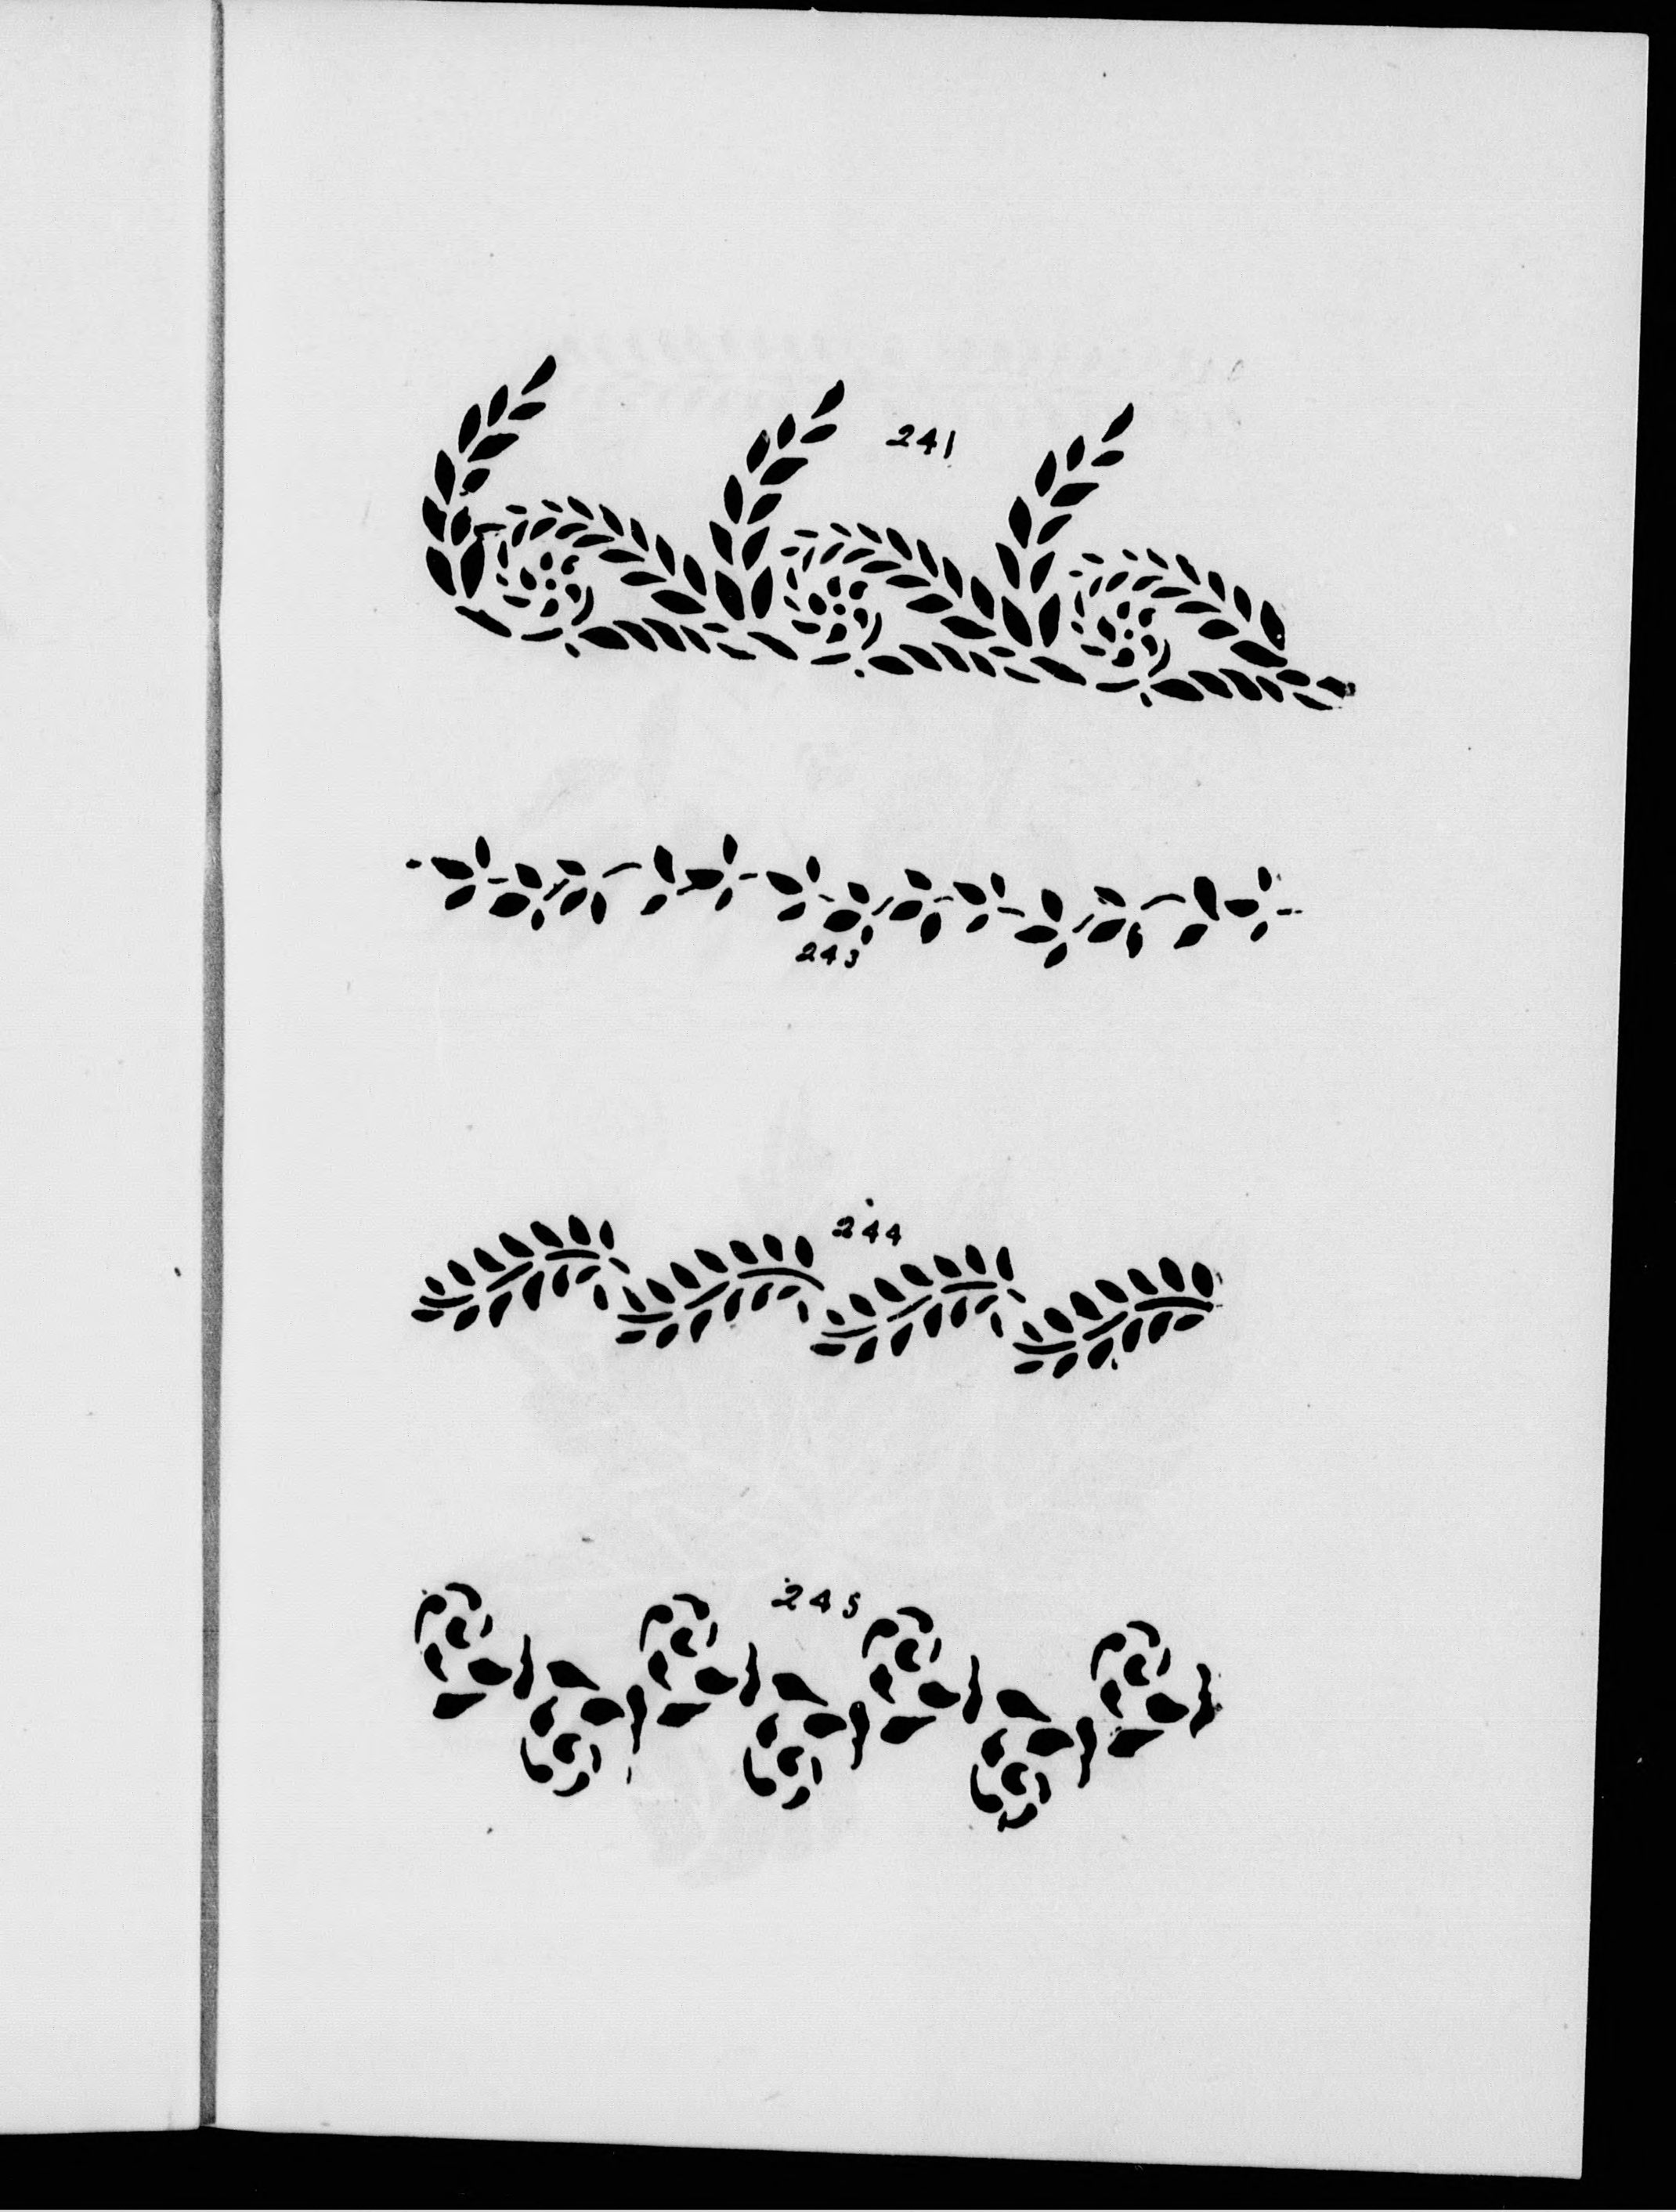 241
243
244
245